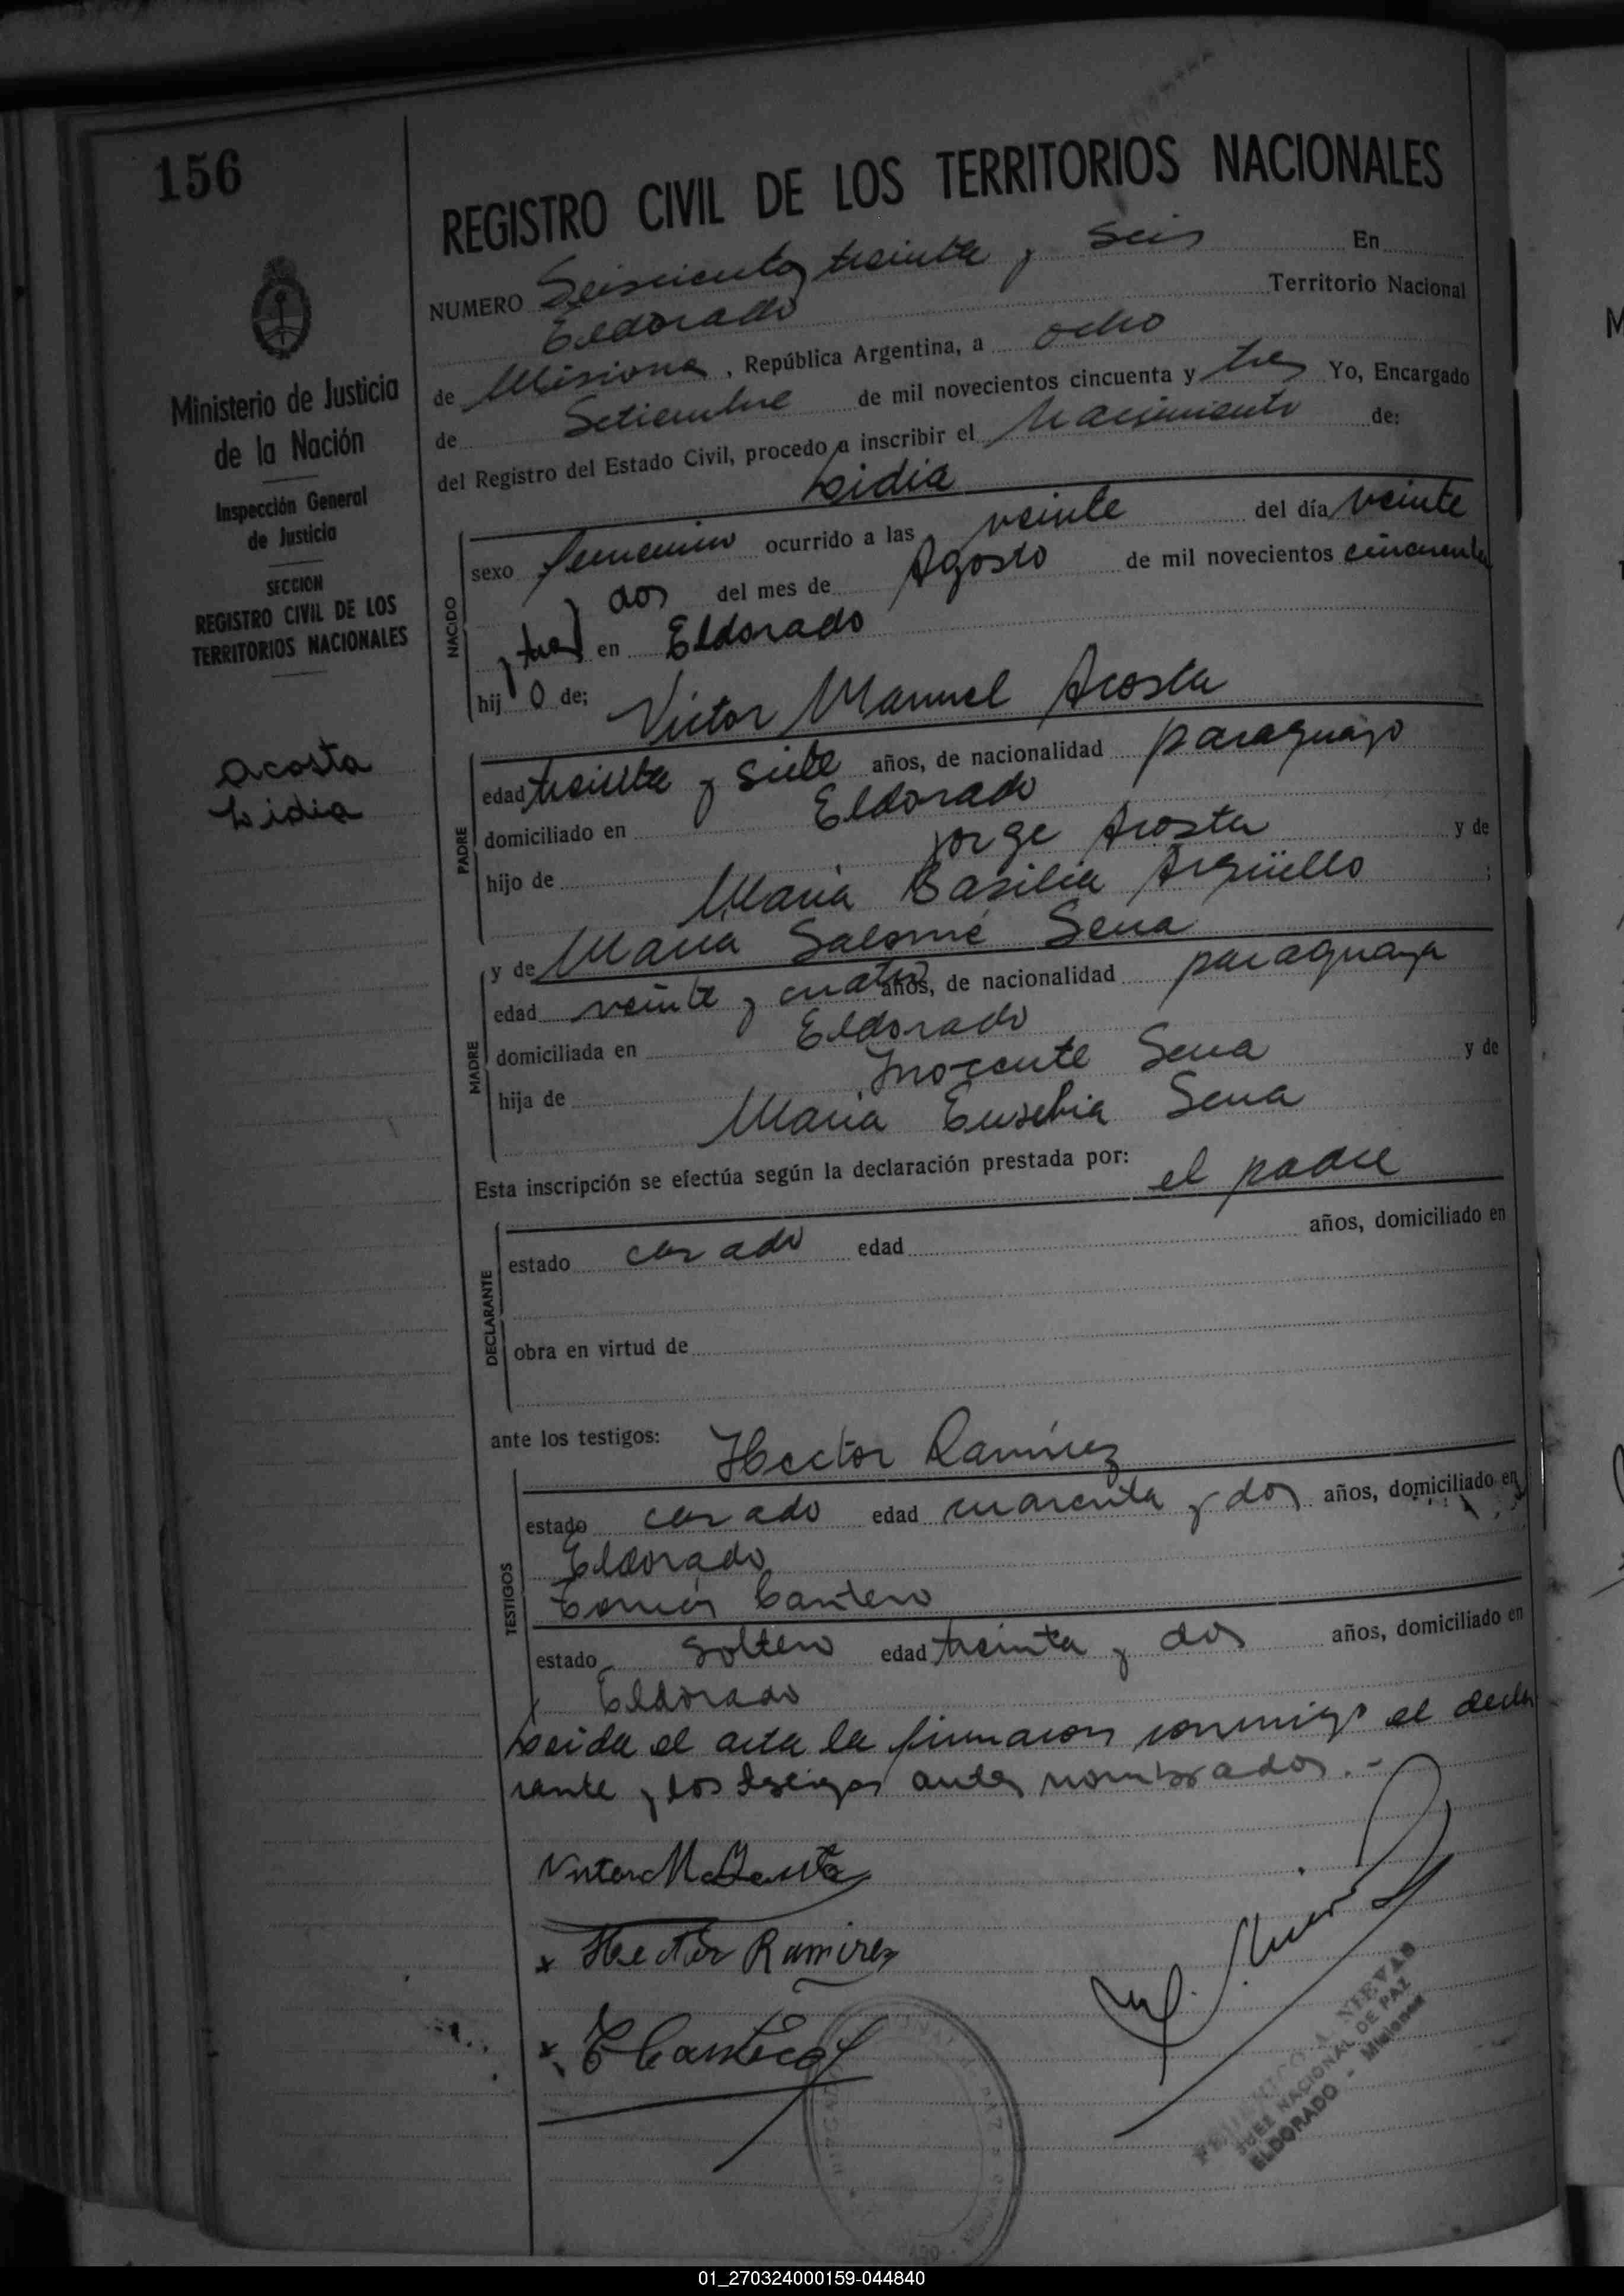 156
REGISTRO CIVIL DE LOS TERRITORIOS NACIONALES
NUMERO Seiscientos treinta y seis En
Eldorado Territorio Nacional
de Misiones, República Argentina, a ocho
de Setiembre de mil novecientos cincuenta y tres Yo, Encargado
del Registro del Estado Civil, procedo a inscribir el Nacimiento de:
Lidia
NACIDO
sexo femenino ocurrido a las veinte del día veinte
y dos del mes de Agosto de mil novecientos cincuenta
y tres en Eldorado
hij o de; Victor Manuel Acosta
PADRE
edad treinta y siete años, de nacionalidad paraguayo
domiciliado en Eldorado
hijo de Jorge Acosta y de
Maria Basilia Argüello ;
y de Maria Salomé Sena
MADRE
edad veinte y cuatro años, de nacionalidad paraguaya
domiciliada en Eldorado
hija de Inocente Sena y de
Maria Eusebia Sena
Esta inscripción se efectúa según la declaración prestada por: el padre
DECLARANTE
estado casado edad años, domiciliado en
obra en virtud de
ante los testigos: Hector Ramirez
TESTIGOS
estado casado edad cuarenta y dos años, domiciliado en
Eldorado
Tomás Cantero
estado soltero edad treinta y dos años, domiciliado en
Eldorado
Leida el acta la firmaron conmigo el decla
rante y los testigos antes nombrados.-
Hector Ramirez
Ministerio de Justicia
de la Nación
Inspección General
de Justicia
SECCION
REGISTRO CIVIL DE LOS
TERRITORIOS NACIONALES
Acosta
Lidia
A. NIEVAS
JUEZ NACIONAL DE PAZ
ELDORADO - Misiones
01_270324000159-044840